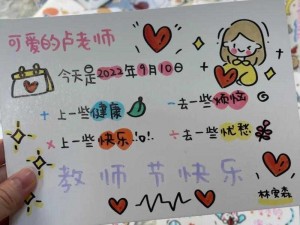 可爱的卢老师
今天是2022年9月10日
+上一些健康 -去一些烦恼
×上一些快乐 ÷去一些忧愁
教师节快乐